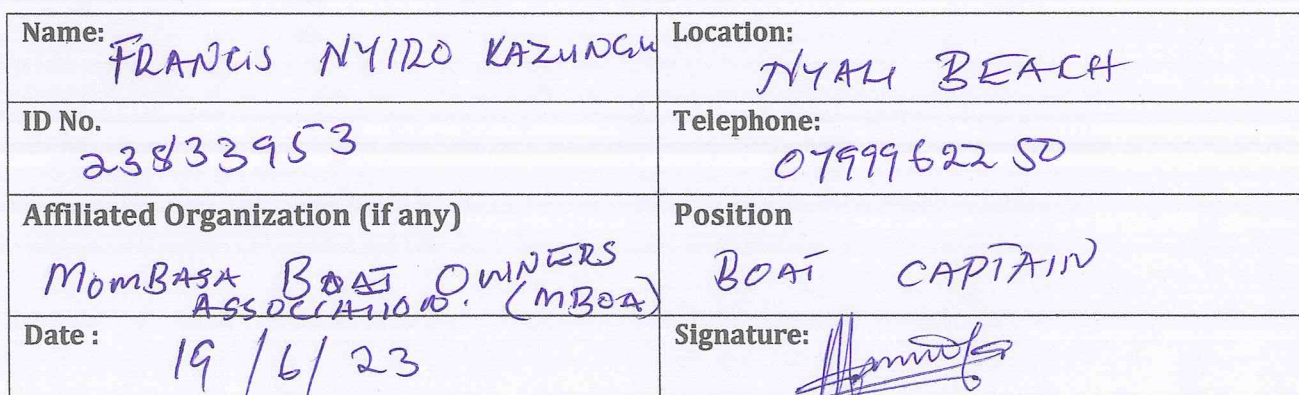 Name: FRANCIS NYIRO KAZUNGU
Location: NYALI BEACH
ID No. 23833953
Telephone: 0799962250
Affiliated Organization (if any)
MOMBASA BOAT OWNERS
ASSOCIATION. (MBOA)
Position
BOAT CAPTAIN
Date : 19/6/23
Signature: